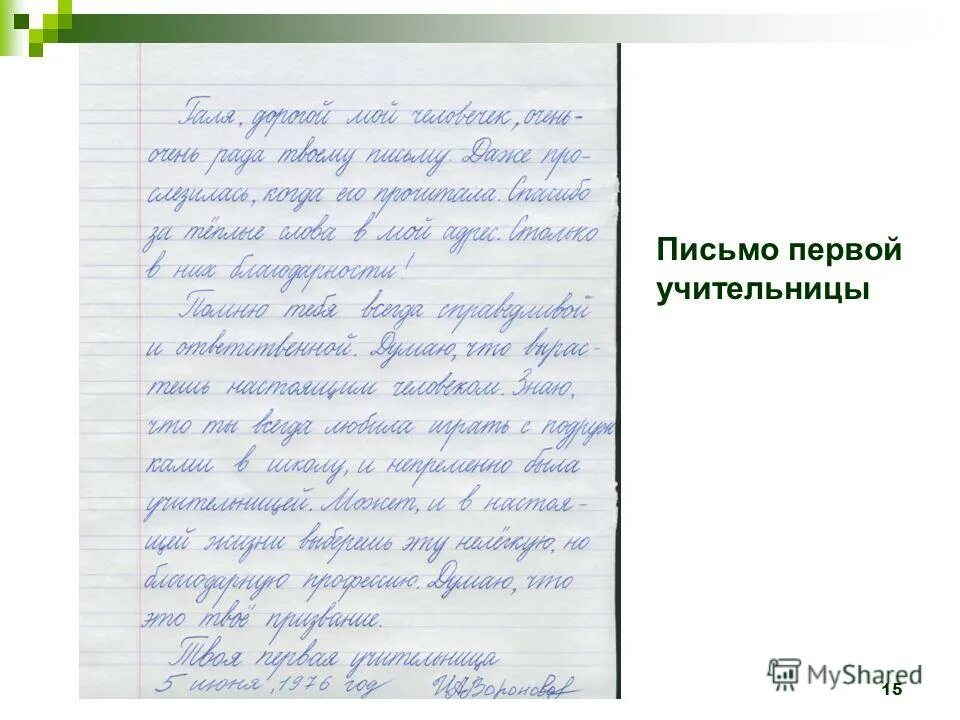 Галя, дорогой мой человечек, очень-
очень рада твоему письму. Даже про-
слезилась, когда его прочитала. Спасибо
за тёплые слова в мой адрес. Столько
в них благодарности!
Помню тебя всегда справедливой
и ответственной. Думаю, что вырас-
тешь настоящим человеком. Знаю,
что ты всегда любила играть с подруж
ками в школу, и непременно была
учительницей. Может, и в настоя-
щей жизни выберешь эту нелёгкую, но
благодарную профессию. Думаю, что
это твоё призвание.
Твоя первая учительница
5 июня, 1976 год
Письмо первой
учительницы
MyShared
15